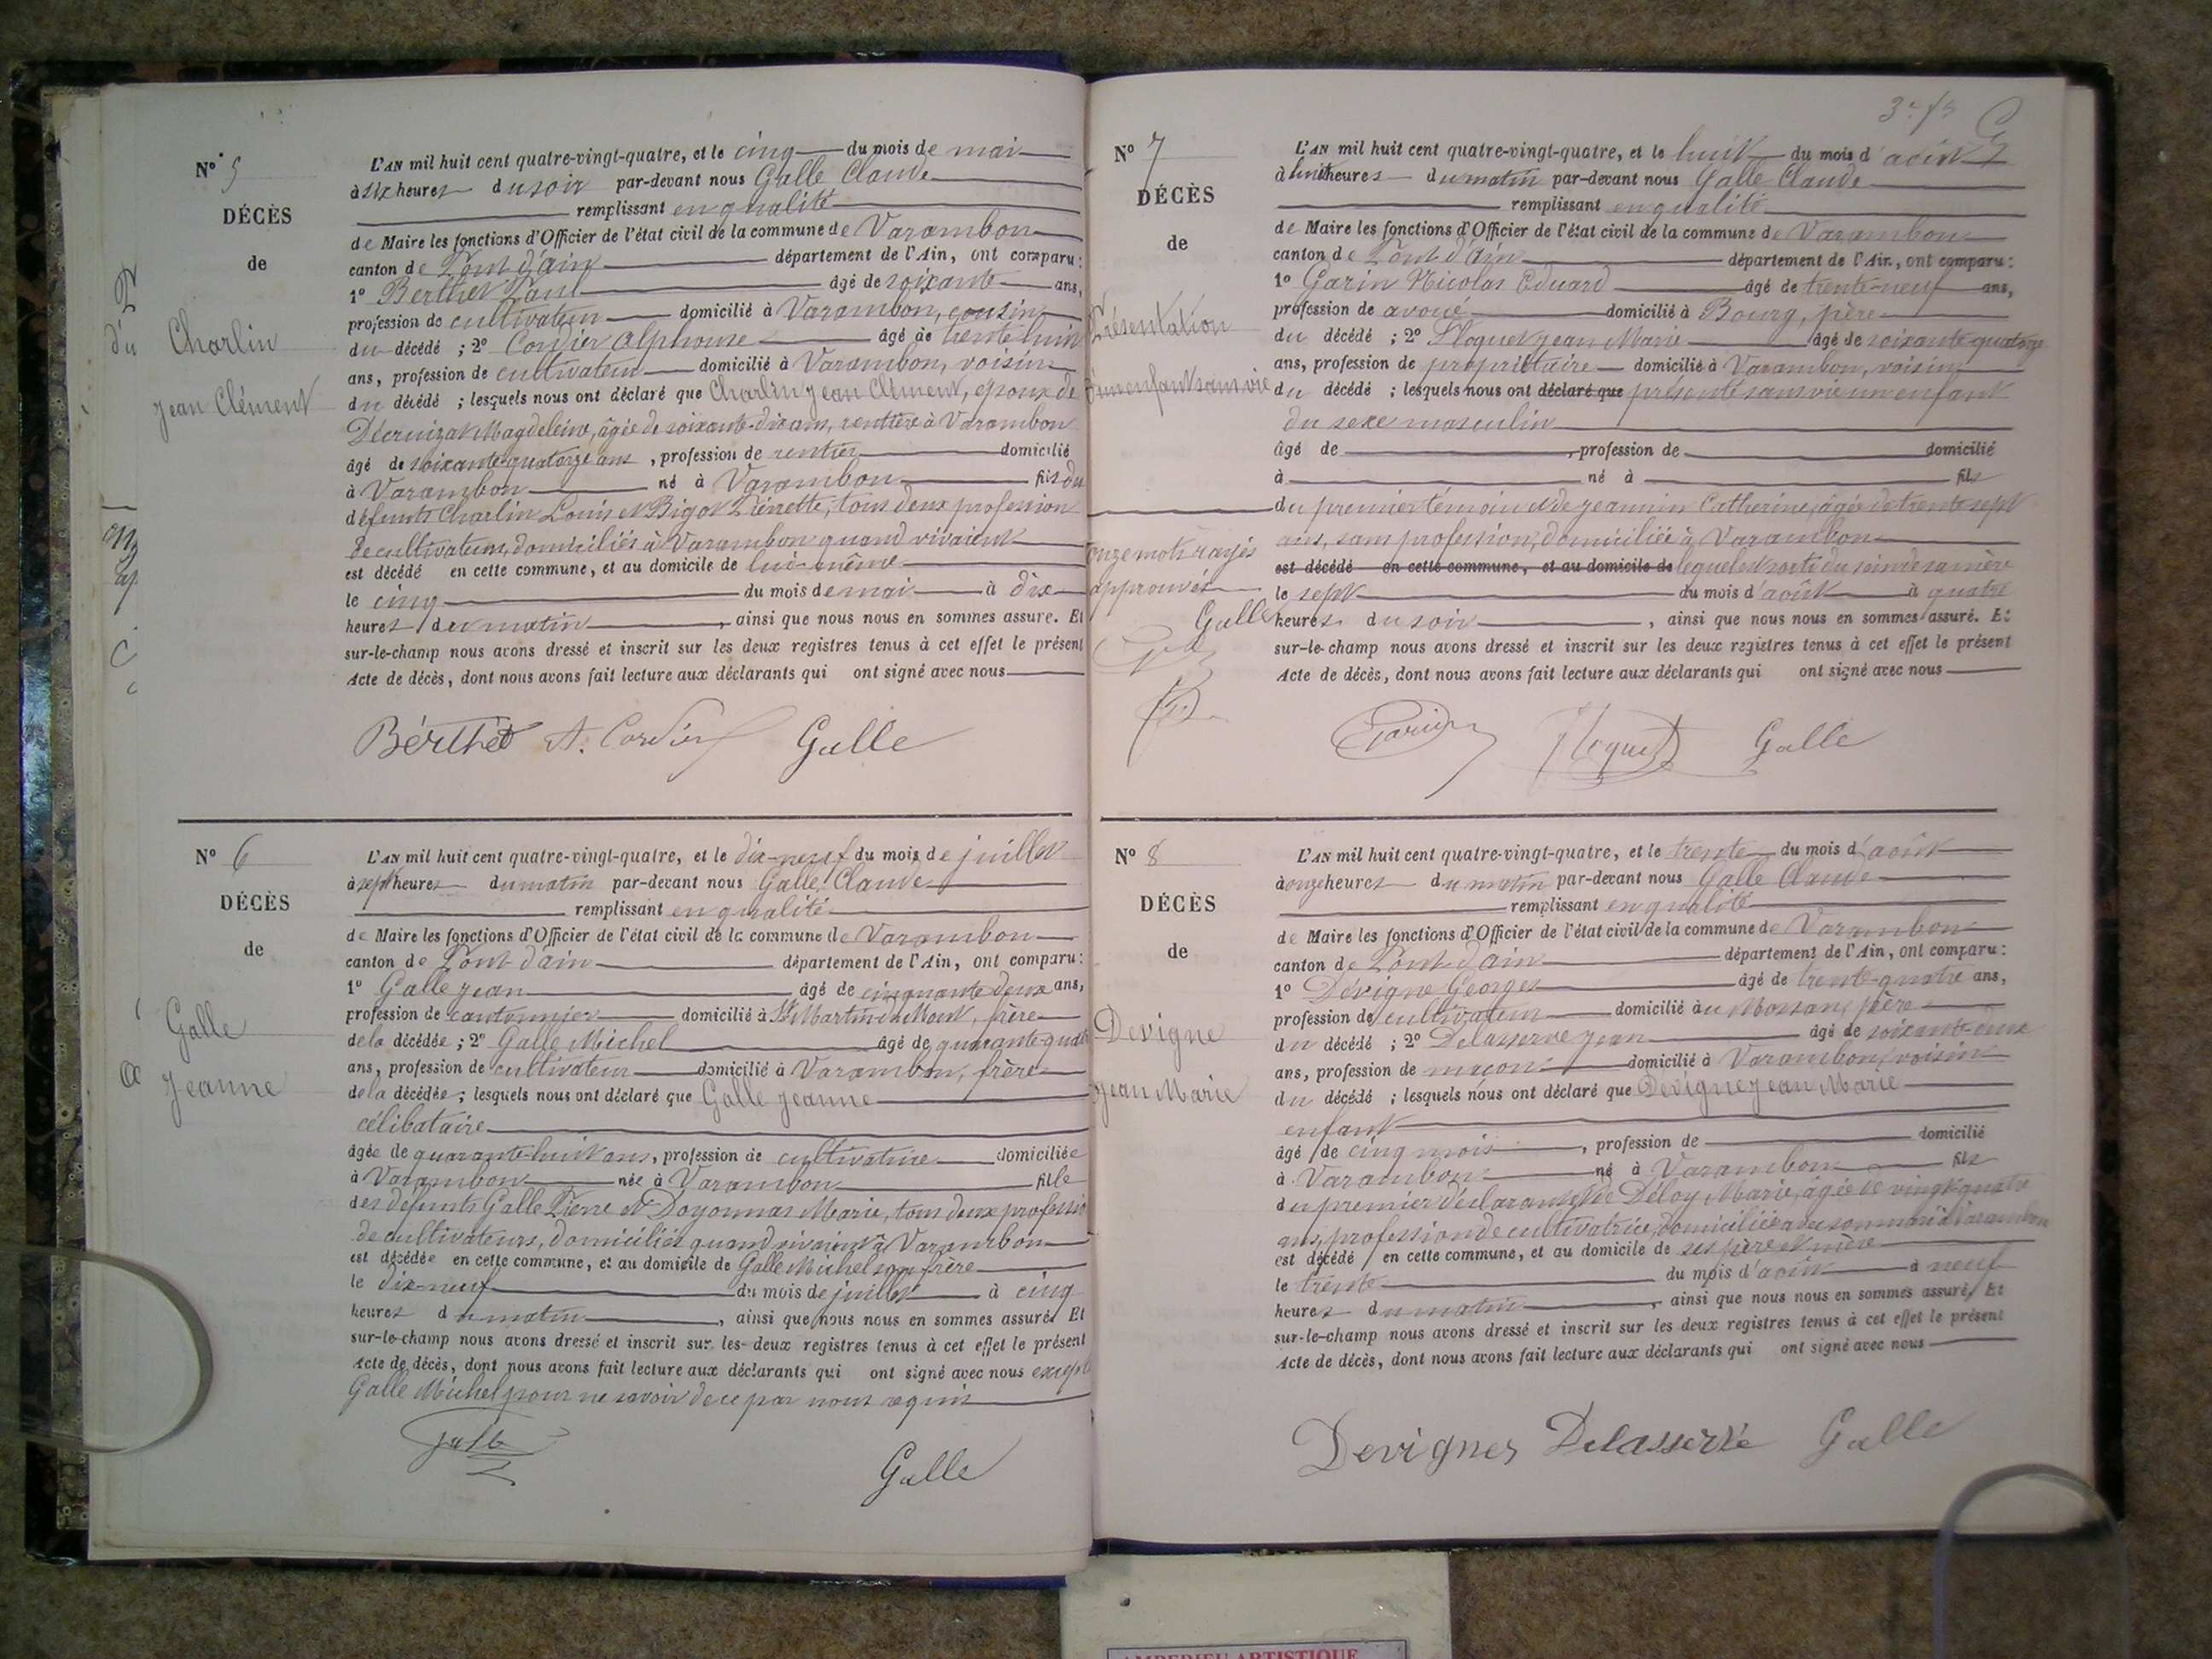 N° 5
DÉCÈS
de
Charlin
Jean Clément
L'AN mil huit cent quatre-vingt-quatre, et le cinq du mois de mai
à six heures du soir par-devant nous Galle Claude
remplissant en qualité
de Maire les fonctions d'Officier de l'état civil de la commune de Varambon
canton de Pont d'ain département de l'Ain, ont comparu :
1° Berthet Paul âgé de soixante ans,
profession de cultivateur domicilié à Varambon, cousin
du décédé ; 2° Cordier Alphonse âgé de trente huit
ans, profession de cultivateur domicilié à Varambon, voisin
du décédé ; lesquels nous ont déclaré que Charlin Jean Clément, époux de
Magdeleine, âgée de soixante-dix ans, rentière à Varambon
âgé de soixante-quatorze ans, profession de rentier domicilié
à Varambon né à Varambon fils de
défunts Charlin Louis et Bigot Pierrette, tous deux profession
de cultivateurs, domiciliés à Varambon quand vivaient
est décédé en cette commune, et au domicile de lui-même
le cinq du mois de mai à dix
heures du matin, ainsi que nous nous en sommes assuré. Et
sur-le-champ nous avons dressé et inscrit sur les deux registres tenus à cet effet le présent
Acte de décès, dont nous avons fait lecture aux déclarants qui ont signé avec nous
Bérthet A. Cordier Galle
N° 6
DÉCÈS
de
Galle
Jeanne
L'AN mil huit cent quatre-vingt-quatre, et le dix-neuf du mois de juillet
à sept heures du matin par-devant nous Galle Claude
remplissant en qualité
de Maire les fonctions d'Officier de l'état civil de la commune de Varambon
canton de Pont d'ain département de l'Ain, ont comparu :
1° Galle Jean âgé de cinquante deux ans,
profession de cantonnier domicilié à St Martin du Mont, frère
de la décédée ; 2° Galle Michel âgé de quarante-quatre
ans, profession de cultivateur domicilié à Varambon, frère
de la décédée ; lesquels nous ont déclaré que Galle Jeanne
célibataire
âgée de quarante-huit ans, profession de cultivatrice domiciliée
à Varambon née à Varambon fille
des défunts Galle Pierre et Doyonnas Marie, tous deux profession
de cultivateurs, domiciliés quand vivaient à Varambon
est décédée en cette commune, et au domicile de Galle Michel son frère
le dix-neuf du mois de juillet à cinq
heures du matin, ainsi que nous nous en sommes assuré. Et
sur-le-champ nous avons dressé et inscrit sur les deux registres tenus à cet effet le présent
Acte de décès, dont nous avons fait lecture aux déclarants qui ont signé avec nous excepté
Galle Michel pour ne savoir de ce par nous requis
Galle
Galle
N° 7
DÉCÈS
de
Présentation
d'un enfant sans vie
onze mots rayés
approuvés
Galle
L'AN mil huit cent quatre-vingt-quatre, et le huit du mois d'août
à huit heures du matin par-devant nous Galle Claude
remplissant en qualité
de Maire les fonctions d'Officier de l'état civil de la commune de Varambon
canton de Pont d'Ain département de l'Ain, ont comparu :
1° Garin Nicolas Eduard âgé de trente-neuf ans,
profession de avoué domicilié à Bourg, père
du décédé ; 2° Floquet Jean Marie âgé de soixante quatorze
ans, profession de propriétaire domicilié à Varambon, voisin
du décédé ; lesquels nous ont déclaré que présenté sans vie un enfant
du sexe masculin
âgé de, profession de domicilié
à né à fils
du premier témoin et de Jeannin Catherine, âgée de trente sept
ans, sans profession, domiciliée à Varambon
est décédé en cette commune, et au domicile de lequel est sorti du sein de sa mère
le sept du mois d'août à quatre
heures du soir, ainsi que nous nous en sommes assuré. Et
sur-le-champ nous avons dressé et inscrit sur les deux registres tenus à cet effet le présent
Acte de décès, dont nous avons fait lecture aux déclarants qui ont signé avec nous
Garin Floquet Galle
N° 8
DÉCÈS
de
Devigne
Jean Marie
L'AN mil huit cent quatre-vingt-quatre, et le trente du mois d'août
à onze heures du matin par-devant nous Galle Claude
remplissant en qualité
de Maire les fonctions d'Officier de l'état civil de la commune de Varambon
canton de Pont d'ain département de l'Ain, ont comparu :
1° Dévigne Georges âgé de trente-quatre ans,
profession de cultivateur domicilié au père
du décédé ; 2° Delasserre Jean âgé de soixante-deux
ans, profession de maçon domicilié à Varambon, voisin
du décédé ; lesquels nous ont déclaré que Devigne Jean Marie
enfant
âgé de cinq mois, profession de domicilié
à Varambon né à Varambon fils
du premier déclarant et de Déloy Marie, âgée de vingt quatre
ans, profession de cultivatrice, domiciliée à Varambon
est décédé en cette commune, et au domicile de ses père et mère
le trente du mois d'août à neuf
heures du matin, ainsi que nous nous en sommes assuré. Et
sur-le-champ nous avons dressé et inscrit sur les deux registres tenus à cet effet le présent
Acte de décès, dont nous avons fait lecture aux déclarants qui ont signé avec nous
Devignes Delasserre Galle
AMBERIEU ARTISTIQUE